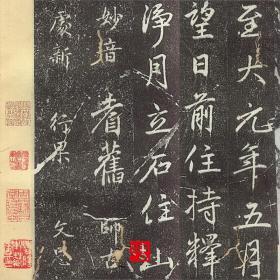 至大元年五月
望日前住持釋
淨月立石住山
妙音 耆舊 師古
處新 行果 文